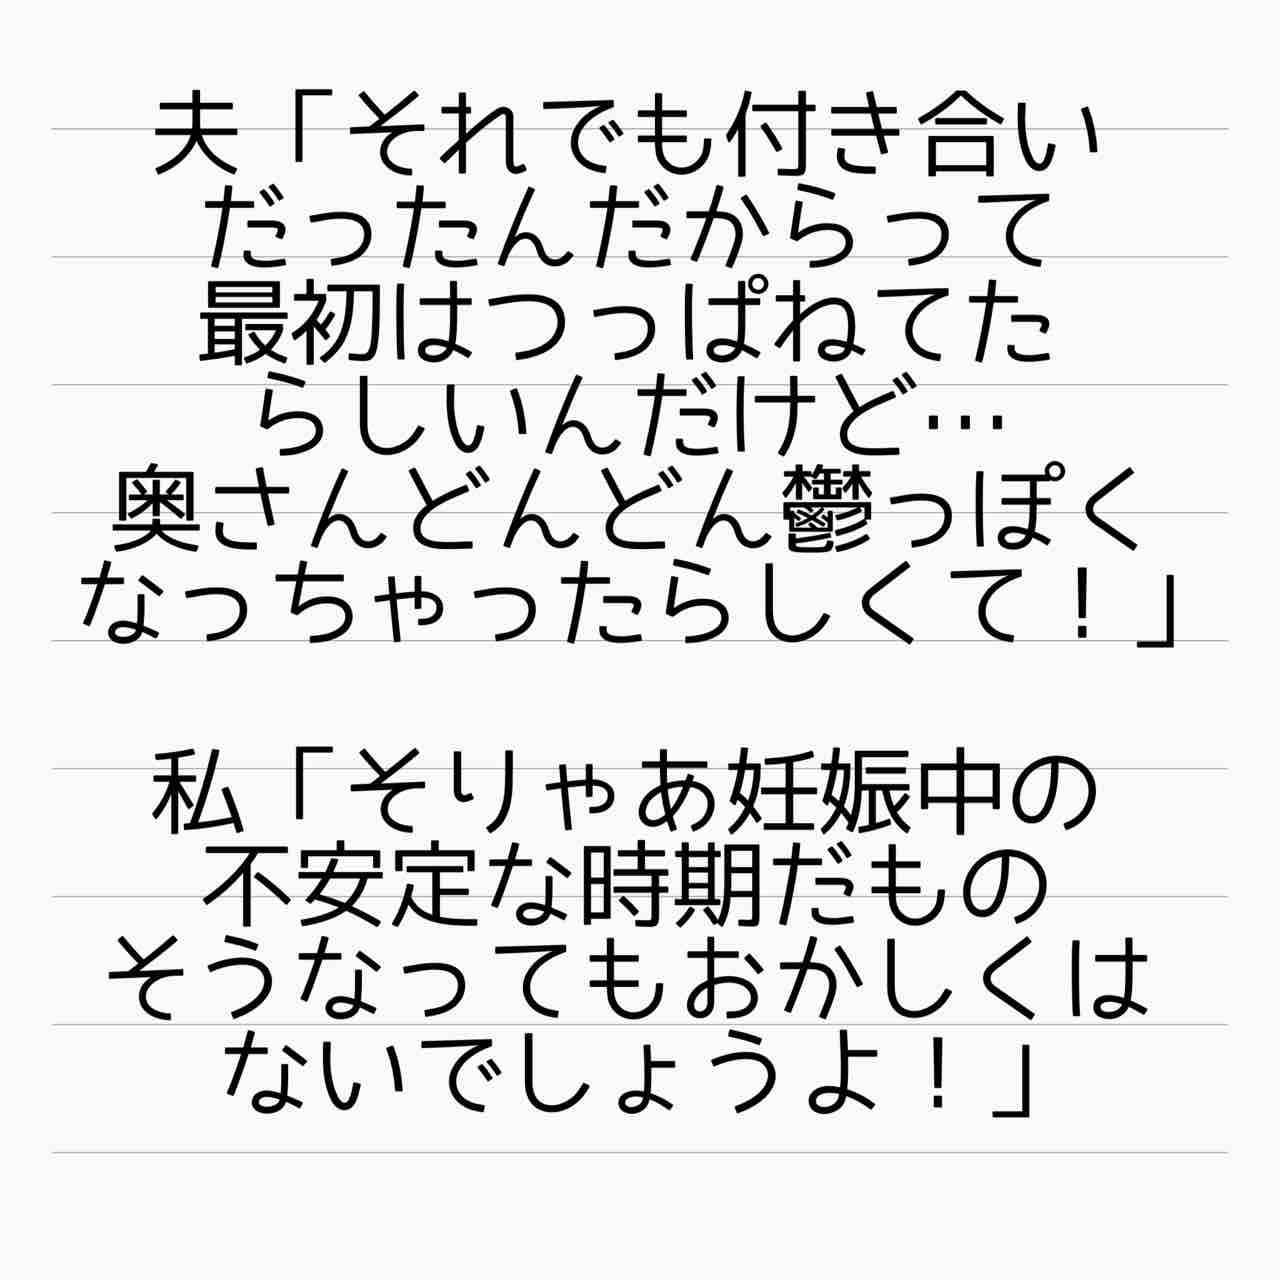 夫「それでも付き合い
だったんだからって
最初はつっぱねてた
らしいんだけど…
奥さんどんどん鬱っぽく
なっちゃったらしくて！」
私「そりゃあ妊娠中の
不安定な時期だもの
そうなってもおかしくは
ないでしょうよ！」